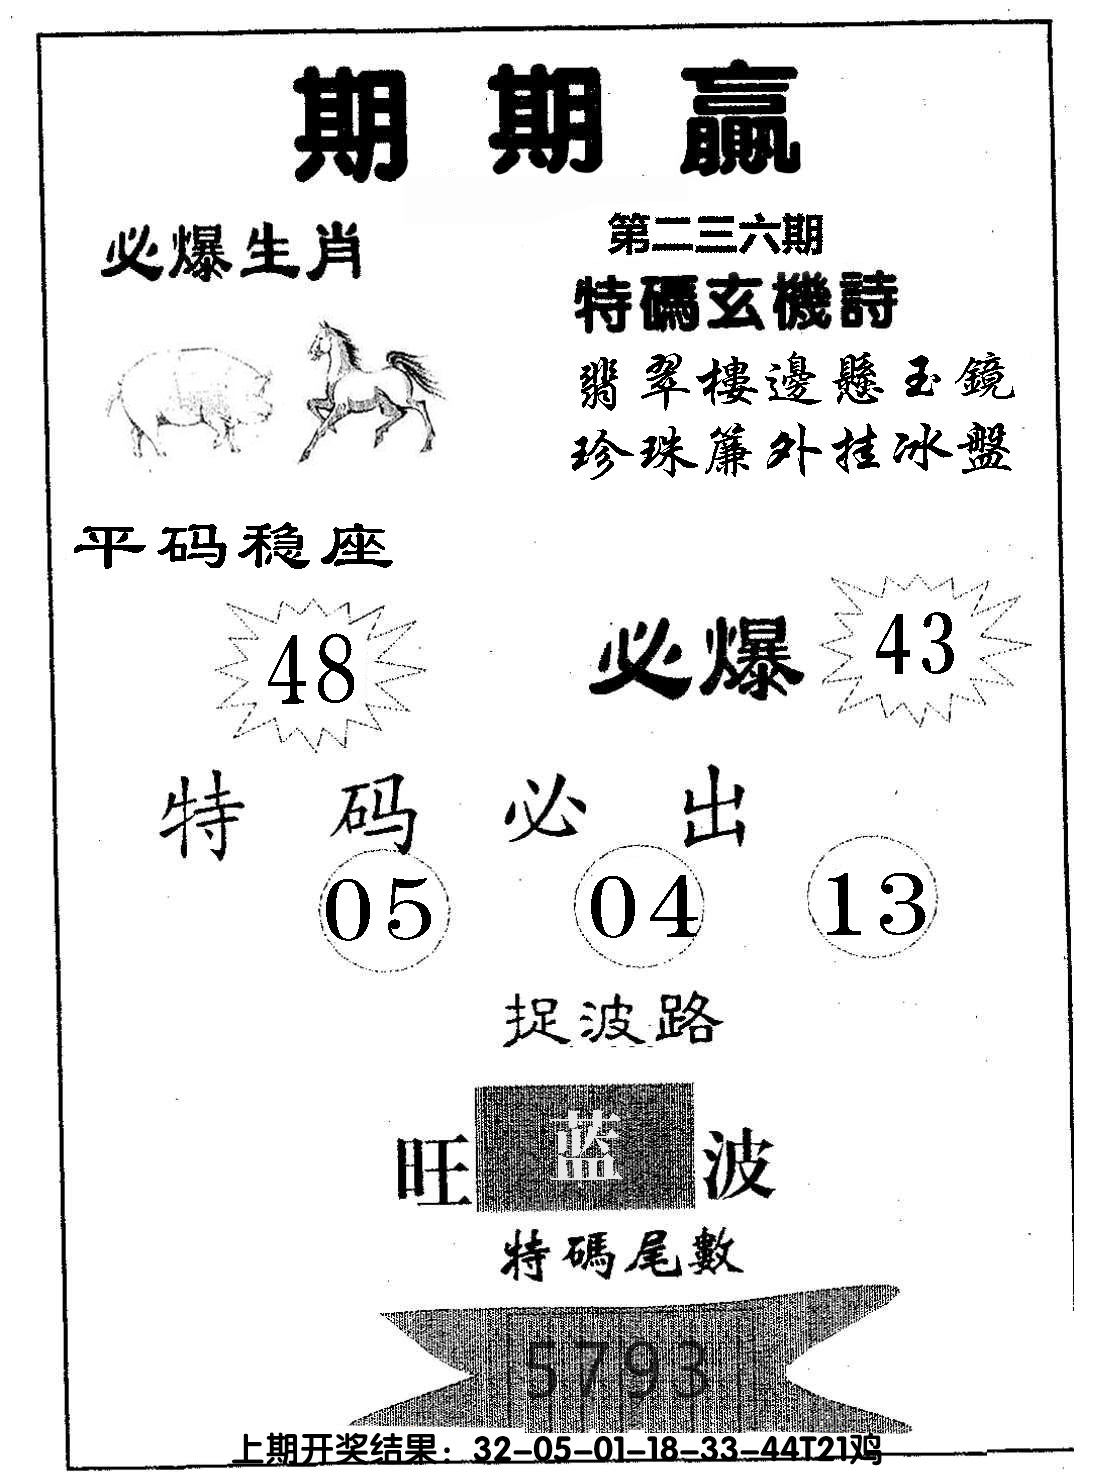 期期赢
必爆生肖
第二三六期
特碼玄機詩
翡翠樓邊懸玉鏡
珍珠簾外挂冰盤
平码稳座
48
必爆 43
特码必出
05 04 13
捉波路
旺蓝波
特碼尾數
5793
上期开奖结果：32-05-01-18-33-44T21鸡